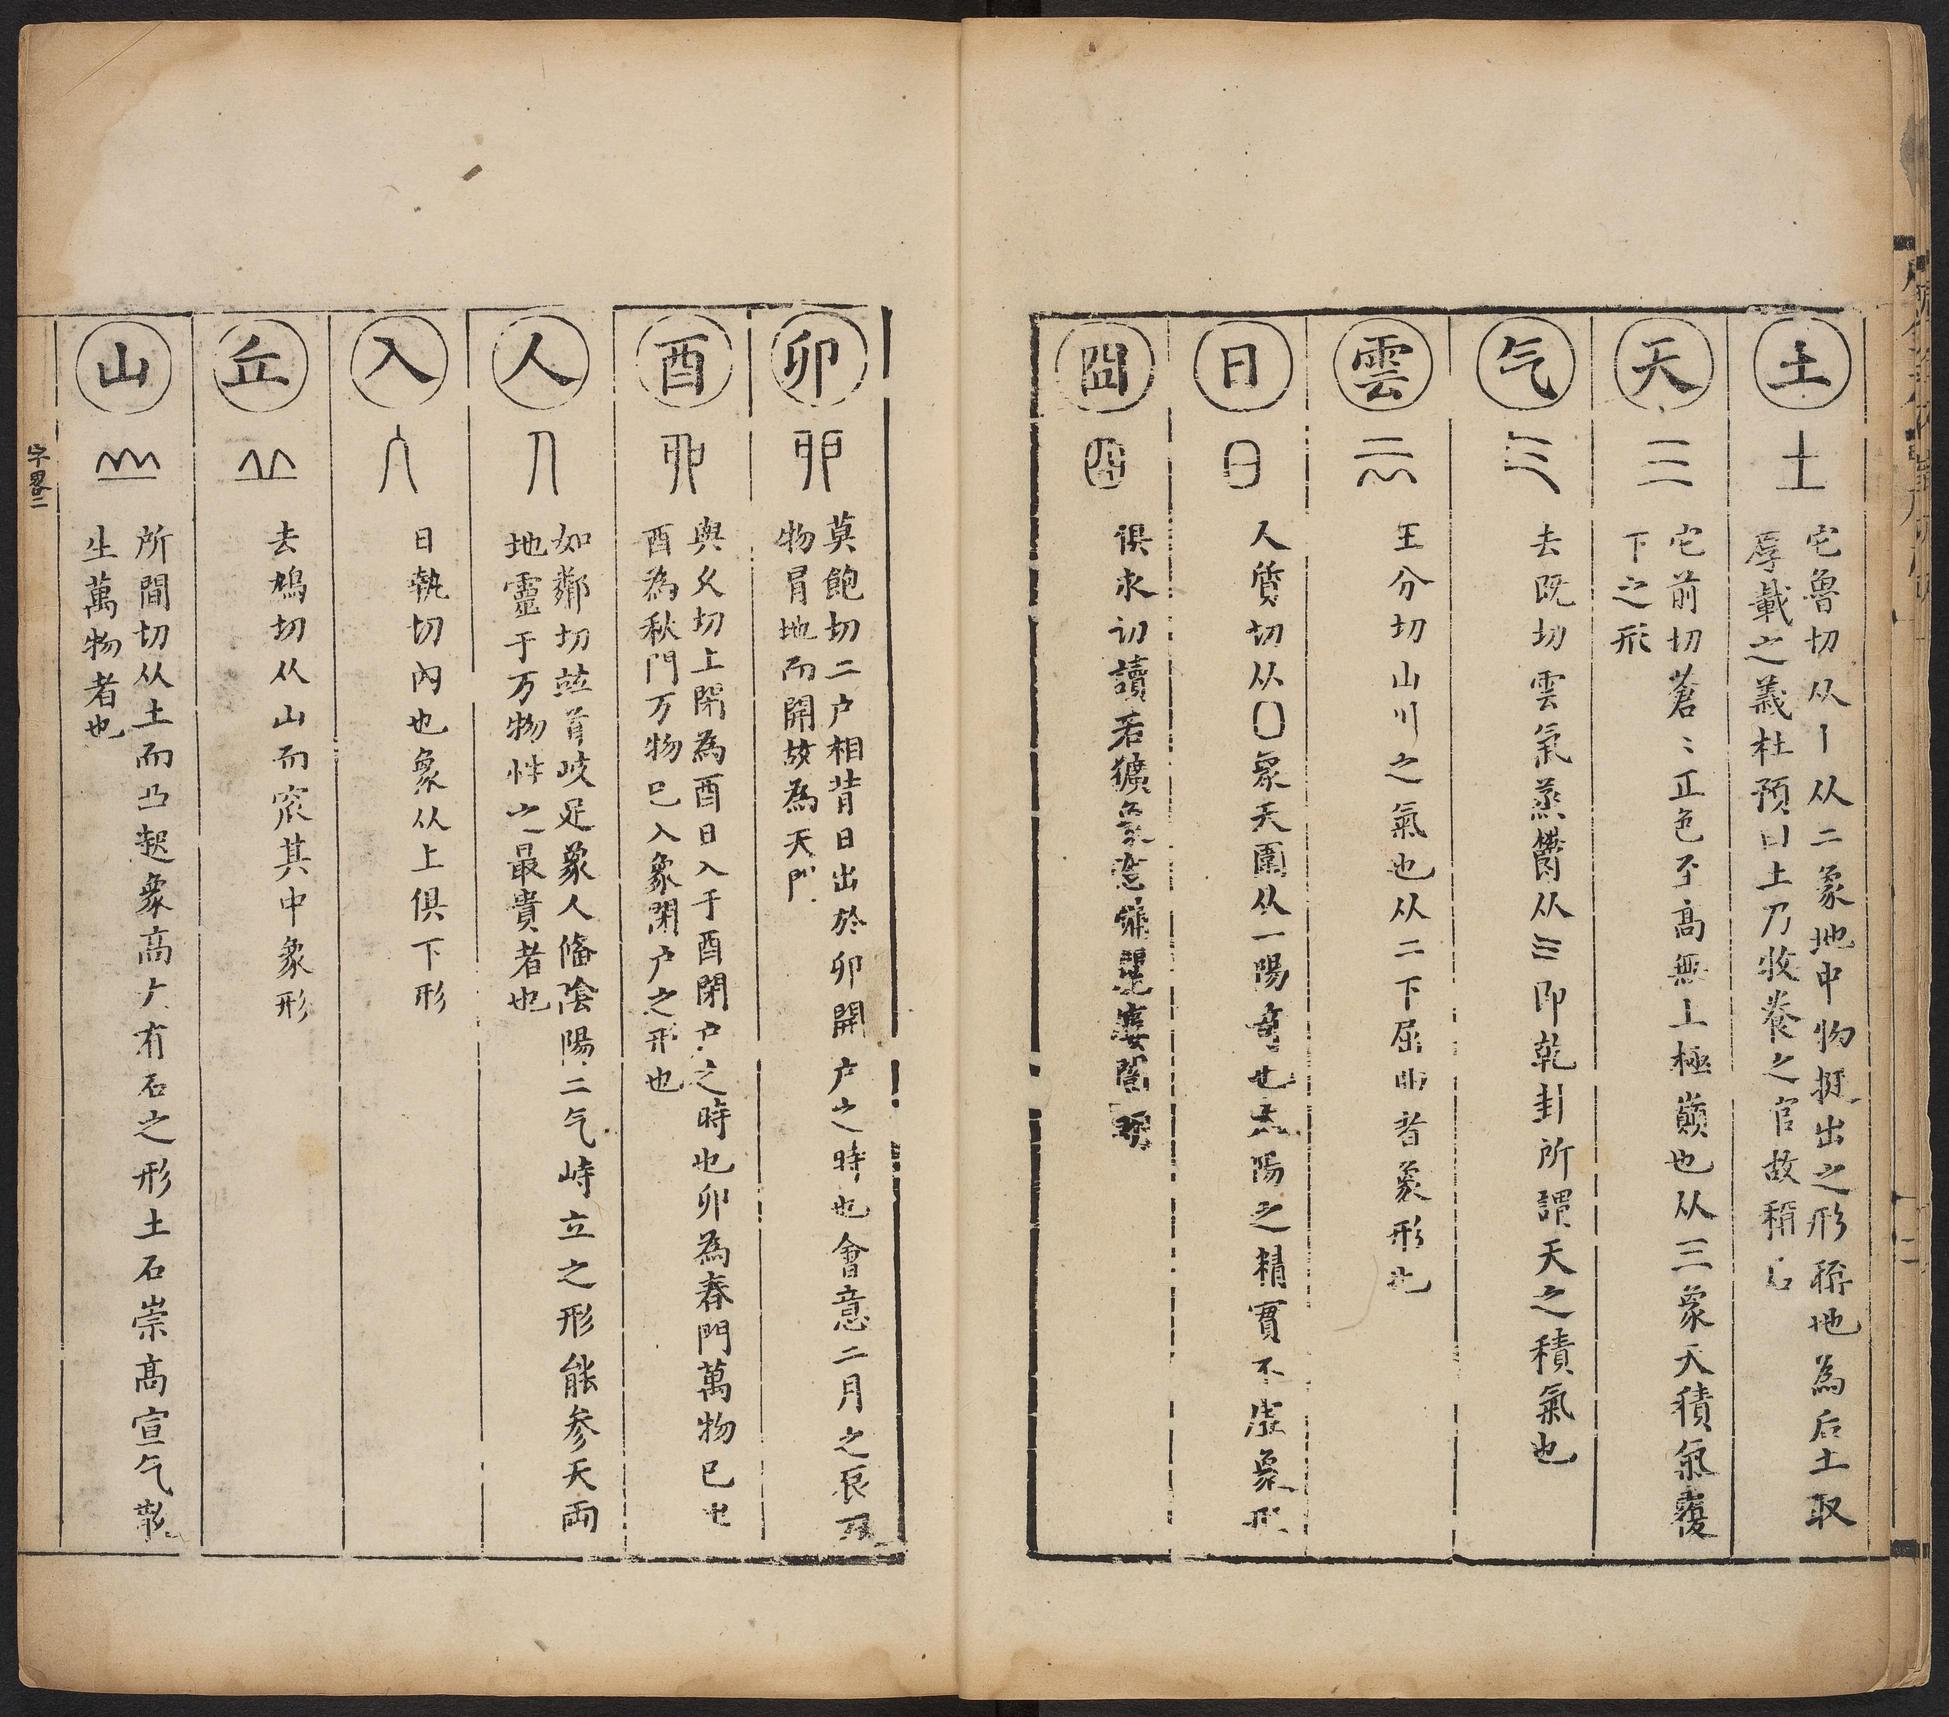 土
土
宅魯切从丨从二象地中物挺出之形稱地為后土取
厚載之義杜預曰土乃收養之官故稱后
天
宅前切蒼〻正色至高無上極巔也从三象天積氣覆
下之形
气
去既切雲氣蒸鬱从三即乾卦所謂天之積氣也
雲
王分切山川之氣也从二下屈曲者象形也
日
日
人質切从〇象天圍从一陽奇也太陽之精實不虛象形
囧
俱永切讀若獷象窓牖麗廔闓明
卯
莫飽切二户相背日出於卯開户之時也會意二月之辰
物冒地而開故為天門
酉
與久切上閉為酉日入于酉閉户之時也卯為春門萬物已出
酉為秋門万物已入象閉户之形也
人
如鄰切竝首岐足象人備陰陽二气峙立之形能參天兩
地靈于万物性之最貴者也
入
日執切內也象从上俱下形
丘
去鳩切从山而窊其中象形
山
所間切从土而凸起象高大有石之形土石崇高宣气散
生萬物者也
字畧二
二